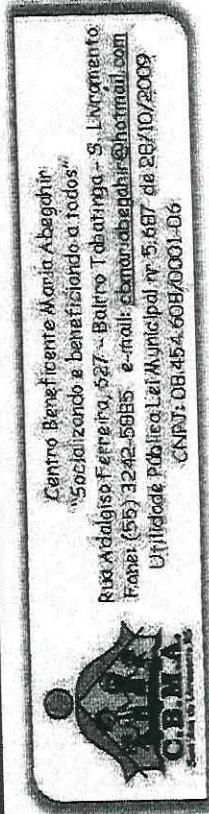 Centro Beneficente Maria Abegahir
"Socializando e beneficiando a todos"
Rua Adalgiso Ferreira, 527 - Bairro Tabatinga - S. Livramento
Fone: (55) 3242-5885 e-mail: cbmariabegahir@hotmail.com
Utilidade Pública Lei Municipal nº 5.687 de 28/10/2009
CNPJ: 08.454.608/0001-06
C.B.M.A.